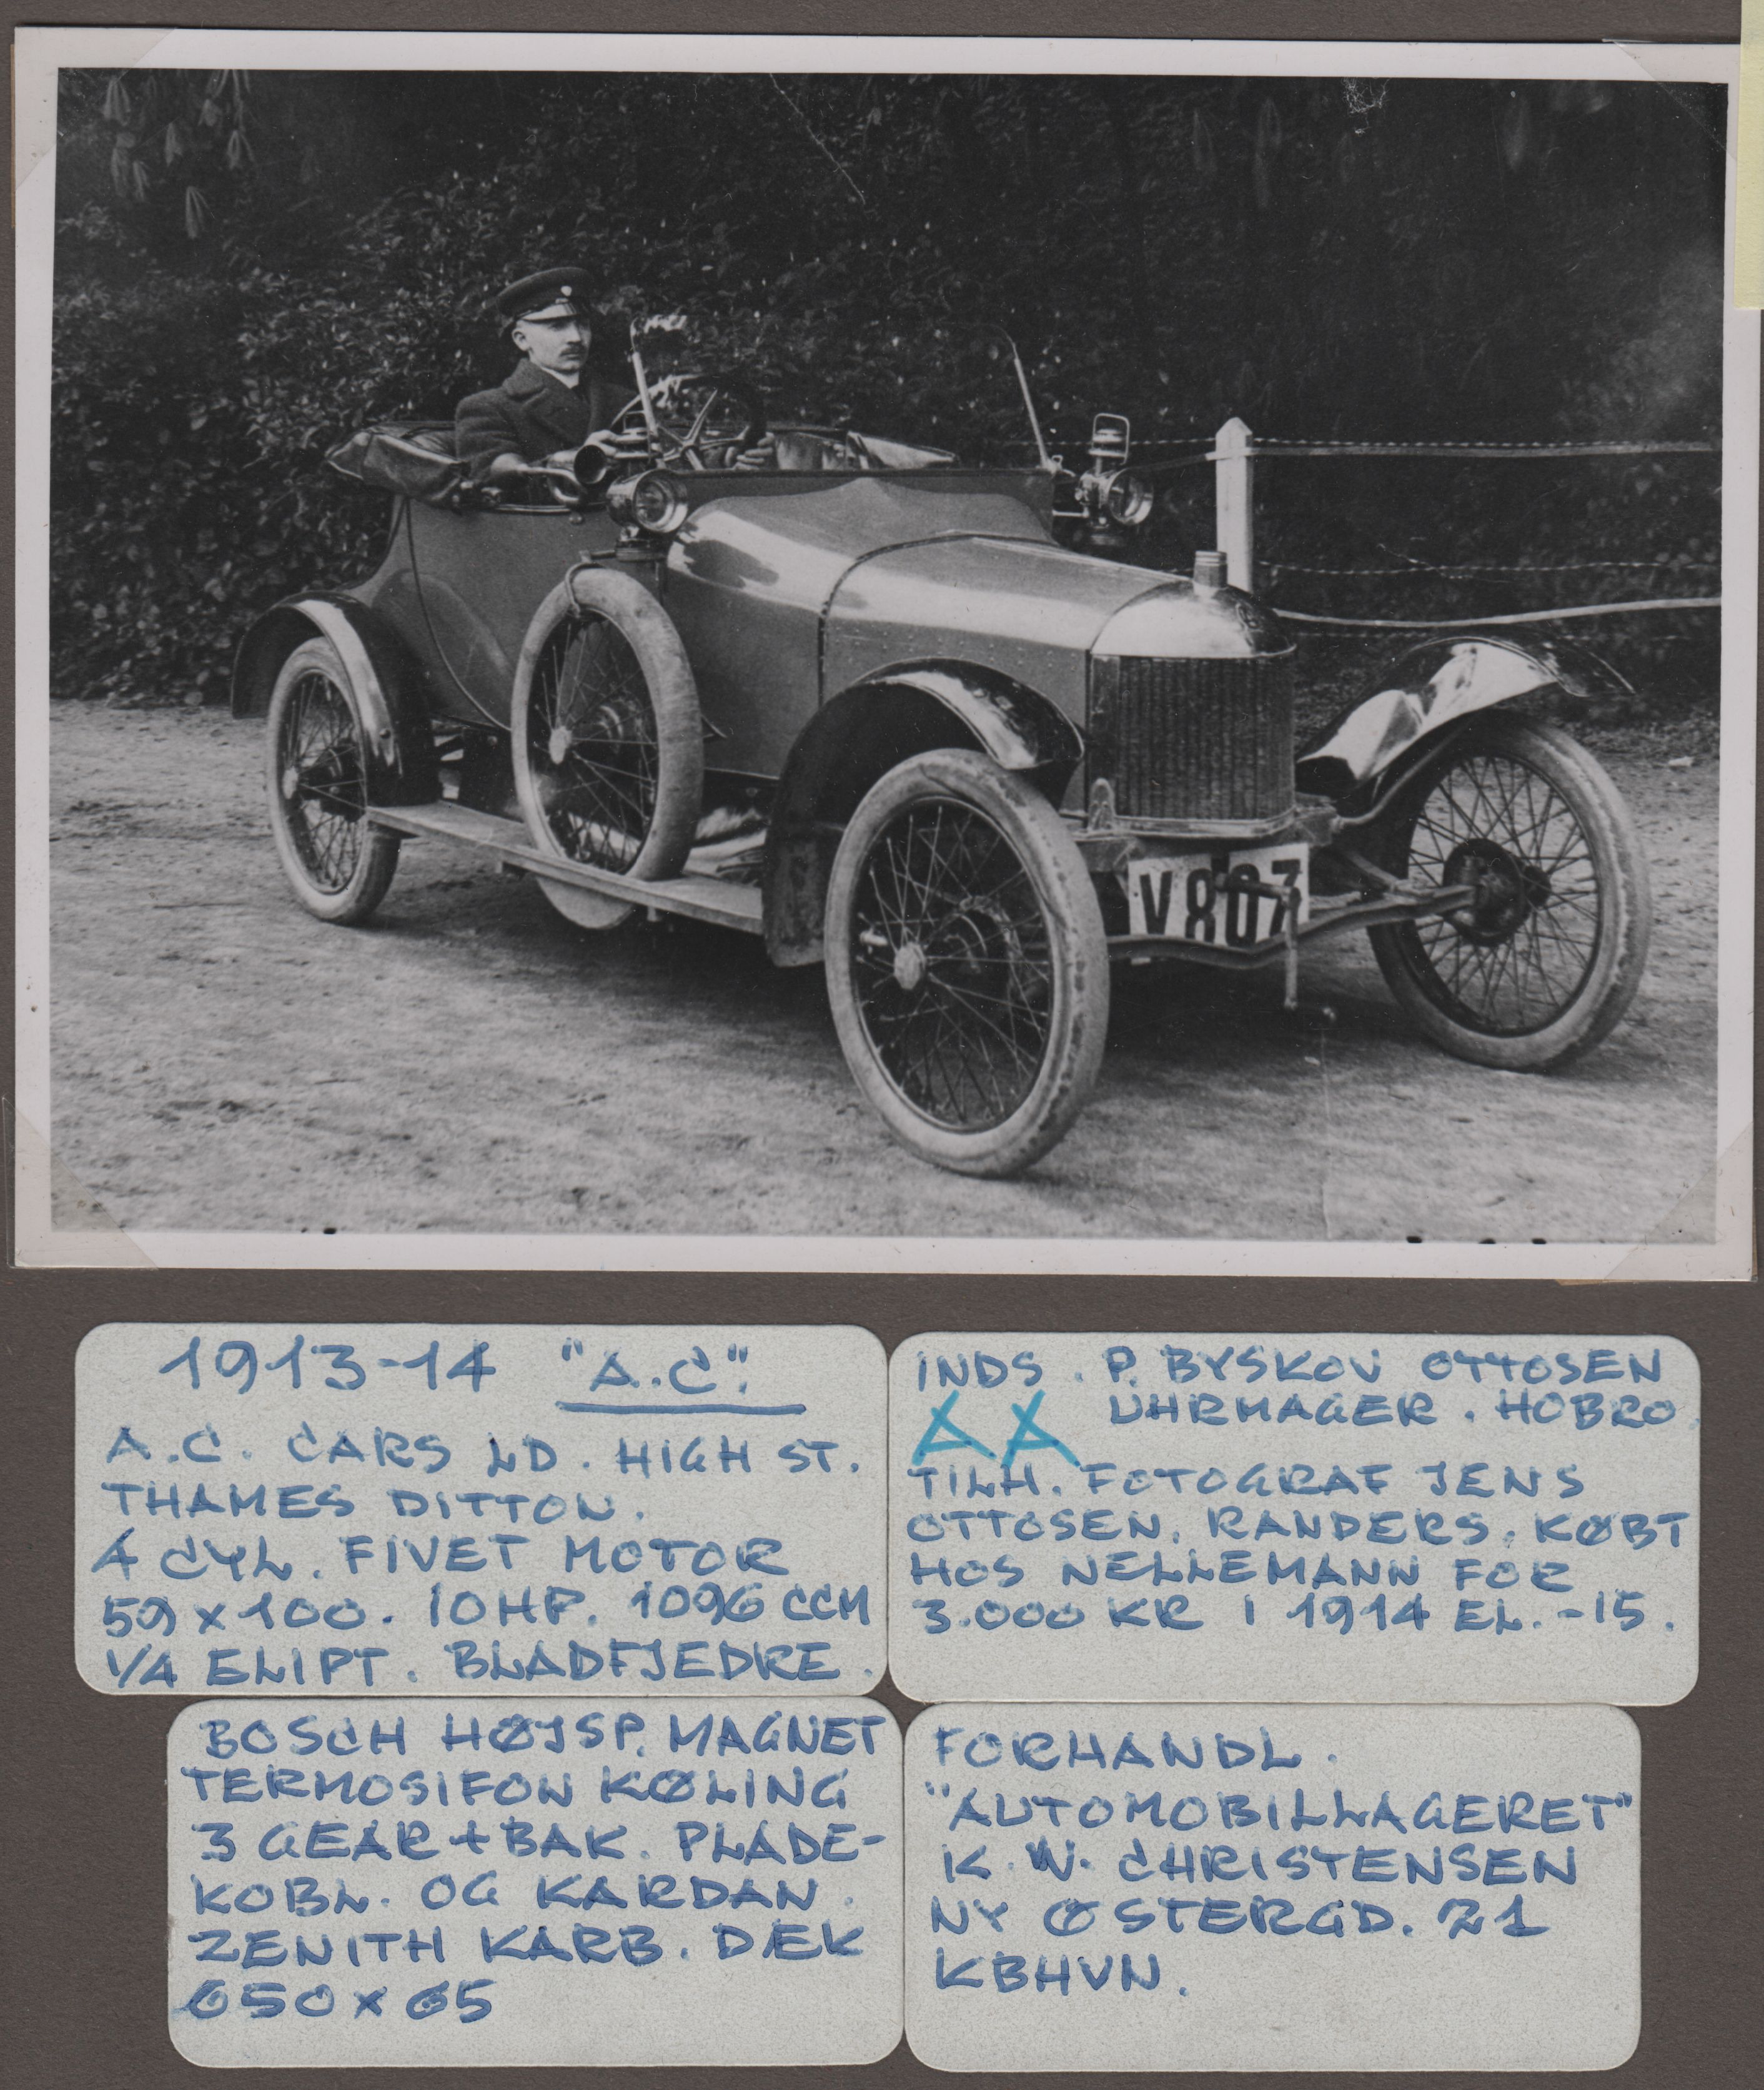 V 807
1913-14 "A.C".
A.C. CARS LD. HIGH ST.
THAMES DITTON.
4 CYL. FIVET MOTOR
59 x 100. 10HP. 1096 CCM
1/4 ELIPT. BLADFJEDRE.
INDS. P. BYSKOV OTTOSEN
UHRMAGER. HOBRO.
AA
TILH. FOTOGRAF JENS
OTTOSEN. RANDERS. KØBT
HOS NELLEMANN FOR
3.000 KR I 1914 EL. -15.
BOSCH HØJSP. MAGNET
TERMOSIFON KØLING
3 GEAR + BAK. PLADE-
KOBL. OG KARDAN.
ZENITH KARB. DÆK
650 x 65
FORHANDL.
"AUTOMOBILLAGERET"
K.W. CHRISTENSEN
NY ØSTERGD. 21
KBHVN.